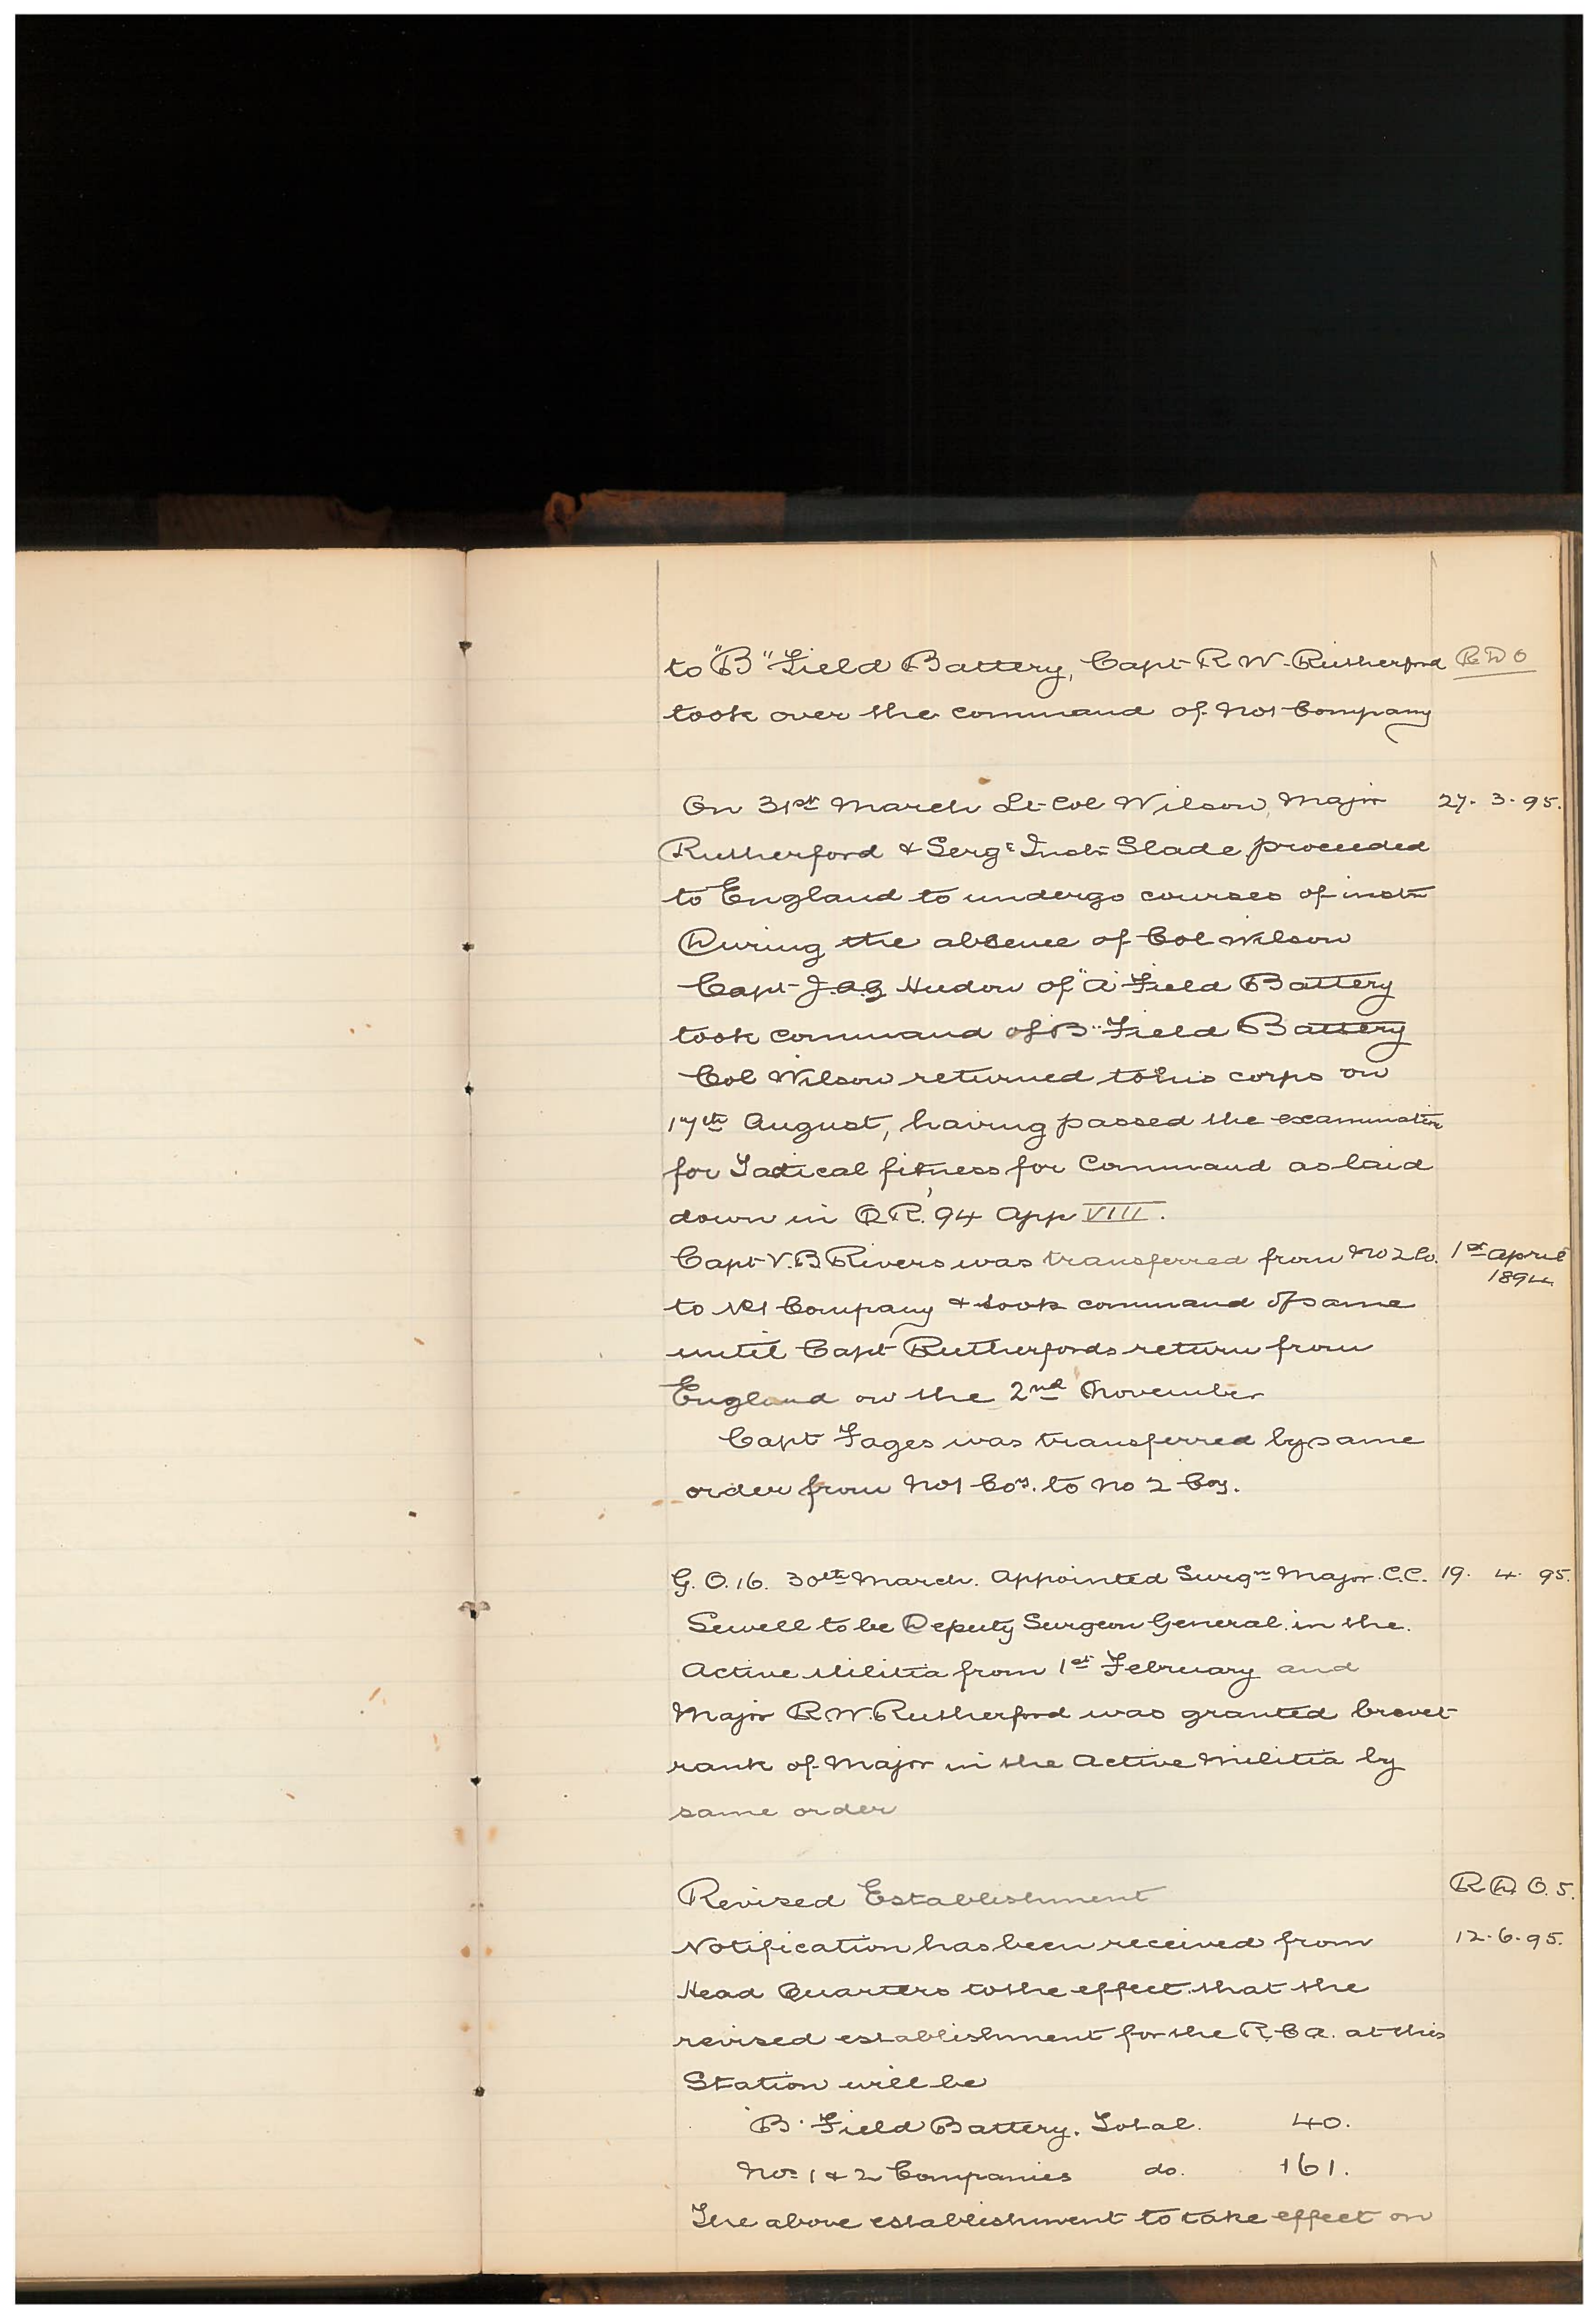 to "B" Field Battery, Capt R. W. Rutherford R D O
took over the command of No 1 Company
On 31st March Lt-Col Wilson, Major 27. 3. 95.
Rutherford & Sergt Instr Slade proceeded
to England to undergo courses of instn
During the absence of Col Wilson
Capt J.A.G Hudon of "A" Field Battery
took command of "B" Field Battery
Col Wilson returned to his corps on
17th August, having passed the examination
for Tactical fitness for Command as laid
down in Q R. '94 App VIII.
Capt V.B Rivers was transferred from No 2 Co. 1st April
1894
to No 1 Company & took command of same
until Capt Rutherfords return from
England on the 2nd November
Capt Fages was transferred by same
order from No 1 Coy. to No 2 Coy.
G. O. 16. 30th March. Appointed Surgn Major C.C. 19. 4. 95.
Sewell to be Deputy Surgeon General in the
Active Militia from 1st February and
Major R.W. Rutherford was granted brevet
rank of Major in the Active Militia by
same order
Revised Establishment R D O. 5.
Notification has been received from 12. 6. 95.
Head Quarters to the effect that the
revised establishment for the R. C A. at this
Station will be
"B" Field Battery. Total. 40.
Nos 1 & 2 Companies do. 161.
The above establishment to take effect on